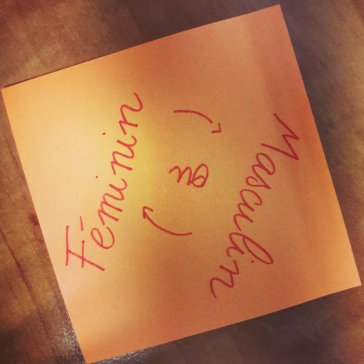 Féminin
Masculin